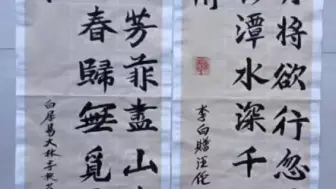 将欲行忽
潭水深千
李白贈汪伦
芳菲盡山
春歸無覓
白居易大林寺桃